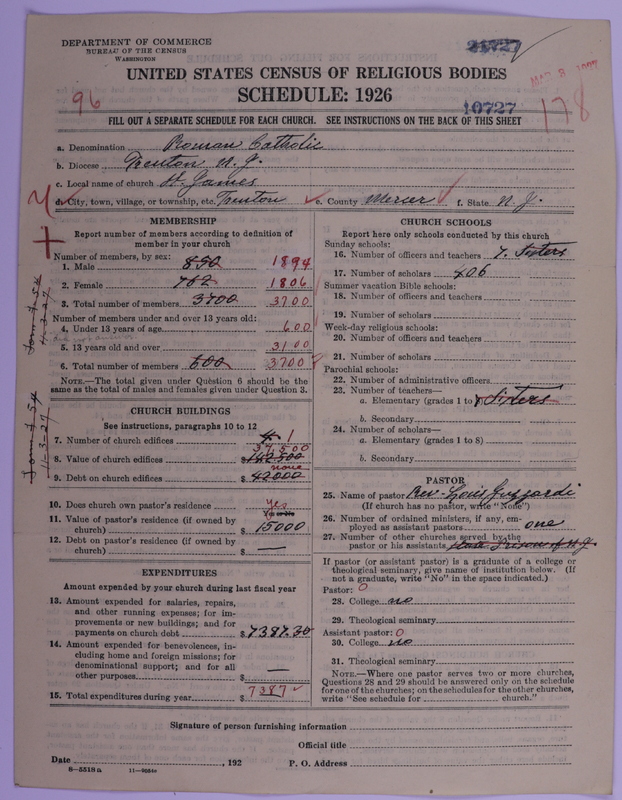 DEPARTMENT OF COMMERCE
BUREAU OF THE CENSUS
WASHINGTON
21727
UNITED STATES CENSUS OF RELIGIOUS BODIES
MAR 8 1927
SCHEDULE: 1926
96
10727
178
FILL OUT A SEPARATE SCHEDULE FOR EACH CHURCH. SEE INSTRUCTIONS ON THE BACK OF THIS SHEET
a. Denomination Roman Catholic
b. Diocese Trenton N. J.
c. Local name of church St. James
d. City, town, village, or township, etc. Trenton e. County Mercer f. State N. J.
MEMBERSHIP
Report number of members according to definition of
member in your church
Number of members, by sex:
1. Male 850 1894
2. Female 762 1806
3. Total number of members 3700 3700
Number of members under and over 13 years old:
4. Under 13 years of age 600
5. 13 years old and over 3100
6. Total number of members 600 3700
NOTE.—The total given under Question 6 should be the
same as the total of males and females given under Question 3.
Form I-54
11-3-27
CHURCH BUILDINGS
See instructions, paragraphs 10 to 12
7. Number of church edifices 4 1
37,500
8. Value of church edifices 142500
none
9. Debt on church edifices $ 42000
10. Does church own pastor's residence yes
Yes or No
11. Value of pastor's residence (if owned by
church) $ 15000
12. Debt on pastor's residence (if owned by
church) $ —
EXPENDITURES
Amount expended by your church during last fiscal year
13. Amount expended for salaries, repairs,
and other running expenses; for im-
provements or new buildings; and for
payments on church debt $ 7387.30
14. Amount expended for benevolences, in-
cluding home and foreign missions; for
denominational support; and for all
other purposes $ —
15. Total expenditures during year $ 7387
CHURCH SCHOOLS
Report here only schools conducted by this church
Sunday schools:
16. Number of officers and teachers 7. Sisters
17. Number of scholars 406
Summer vacation Bible schools:
18. Number of officers and teachers
19. Number of scholars
Week-day religious schools:
20. Number of officers and teachers
21. Number of scholars
Parochial schools:
22. Number of administrative officers
23. Number of teachers—
a. Elementary (grades 1 to 8) Sisters
b. Secondary
24. Number of scholars—
a. Elementary (grades 1 to 8)
b. Secondary
PASTOR
25. Name of pastor Rev. Louis Guzzardi
(If church has no pastor, write "None")
26. Number of ordained ministers, if any, em-
ployed as assistant pastors one
27. Number of other churches served by the
pastor or his assistants State Prison of N. J.
If pastor (or assistant pastor) is a graduate of a college or
theological seminary, give name of institution below. (If
not a graduate, write "No" in the space indicated.)
Pastor: 0
28. College no
29. Theological seminary
Assistant pastor: 0
30. College no
31. Theological seminary
NOTE.—Where one pastor serves two or more churches,
Questions 28 and 29 should be answered only on the schedule
for one of the churches; on the schedules for the other churches,
write "See schedule for church."
Signature of person furnishing information
Official title
Date , 192 P. O. Address
8-5518 a